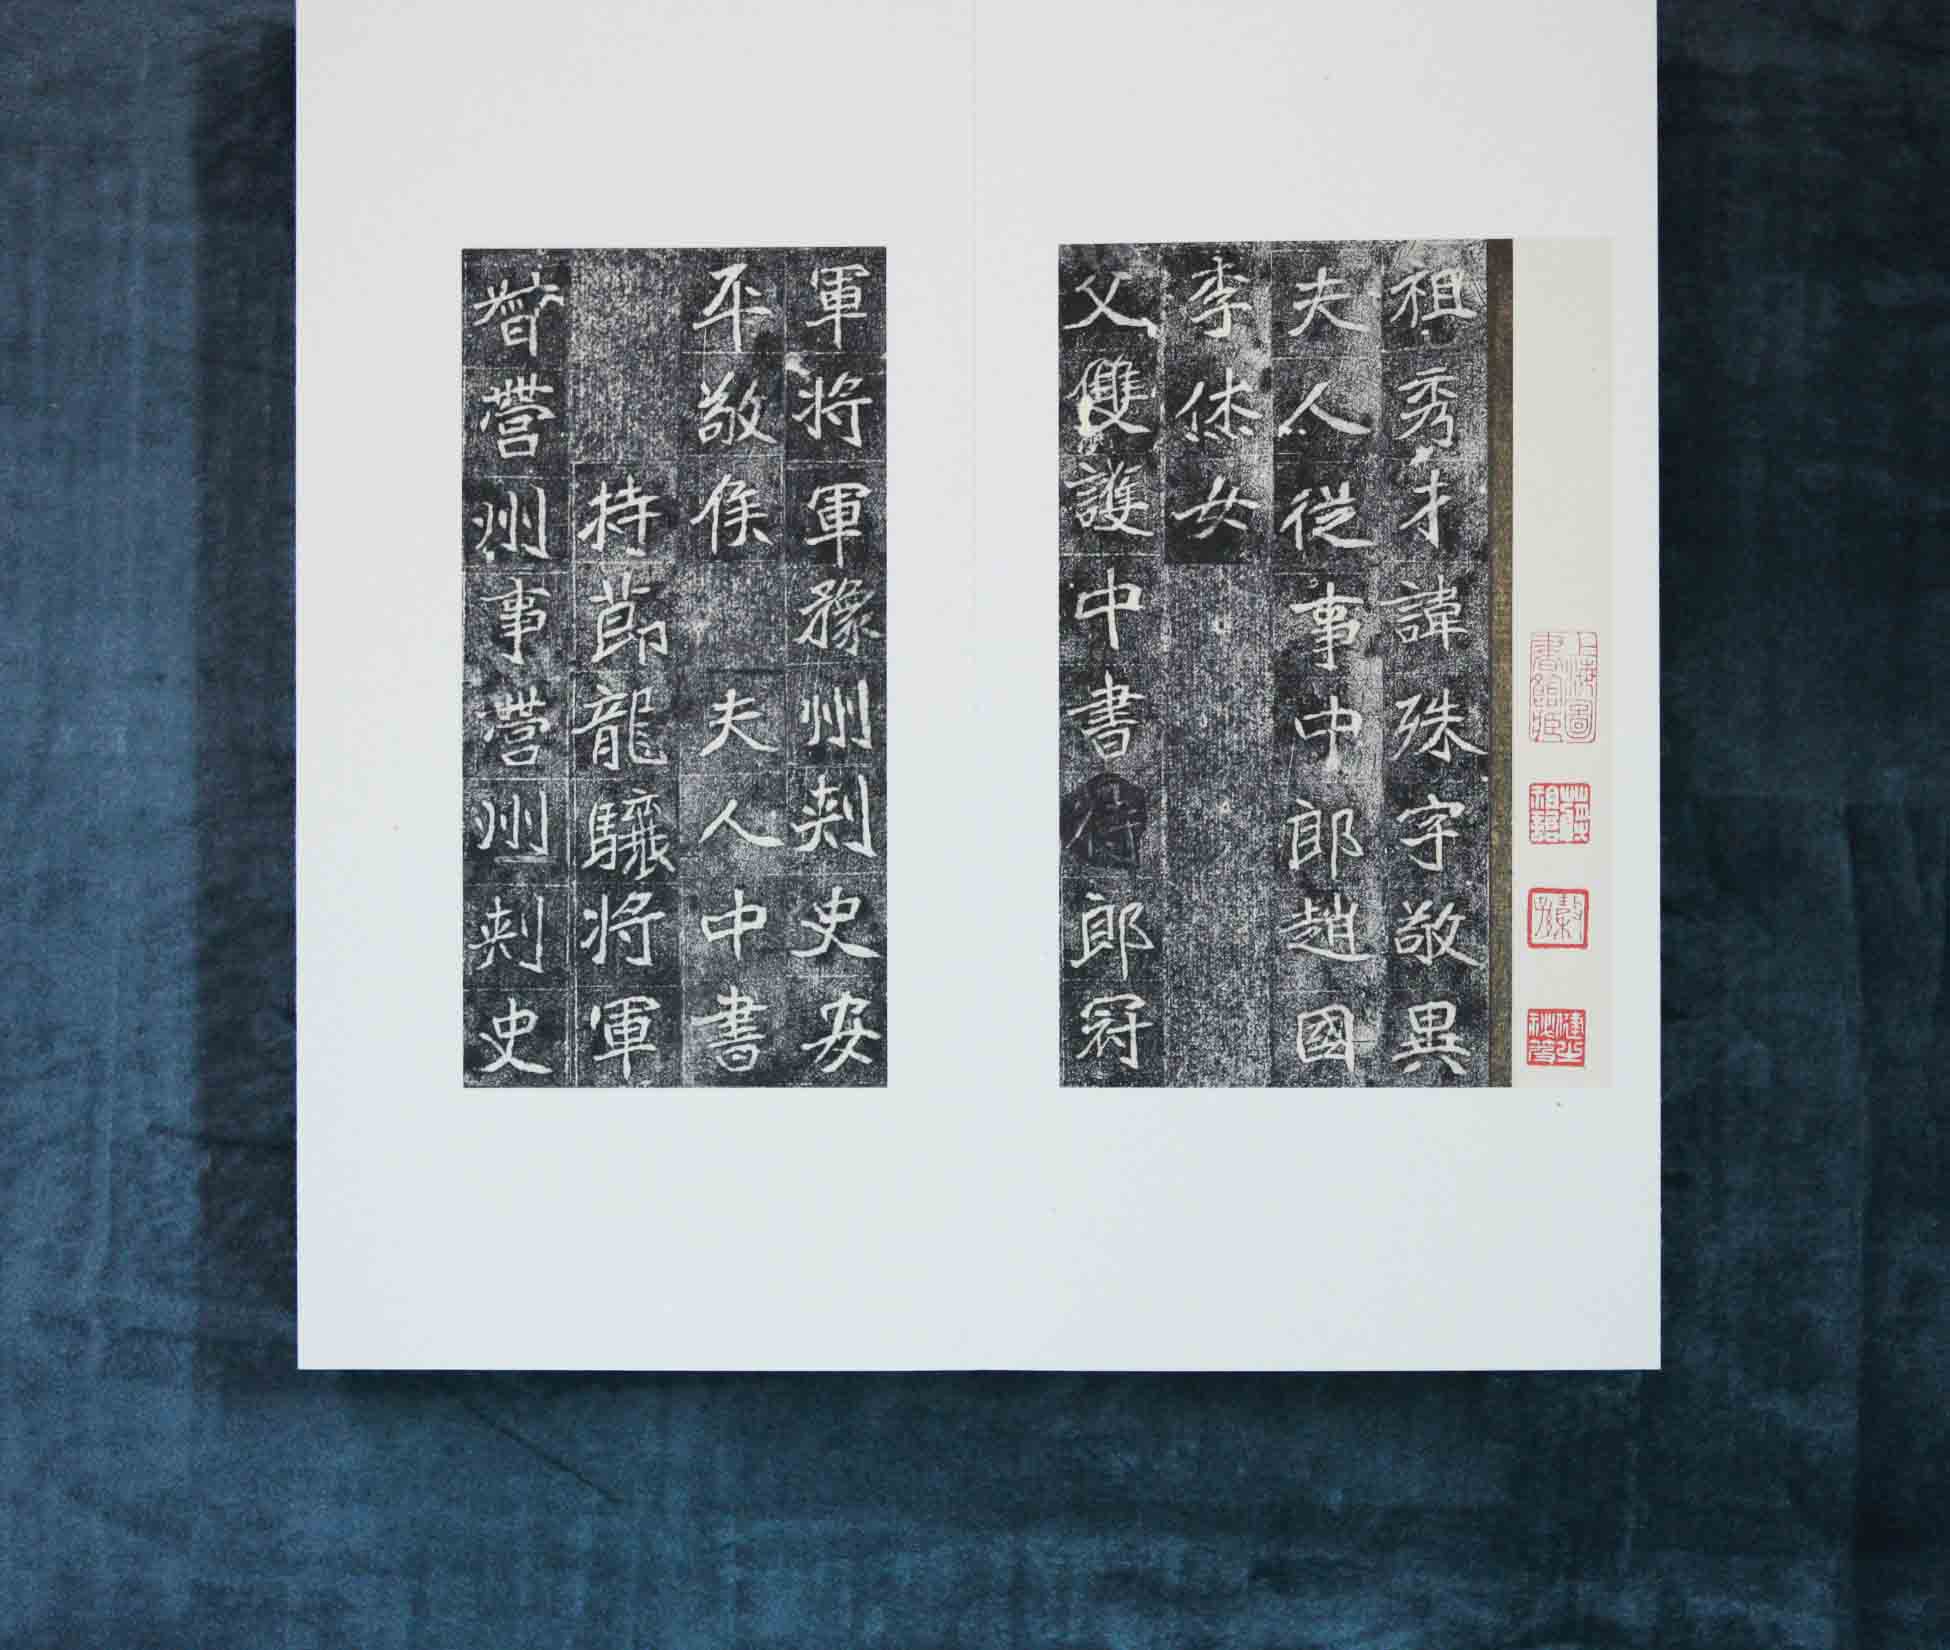 上海圖書館藏
蔣祖詒
穀孫
祖秀才諱殊字敬異
夫人從事中郎趙國
李烋女
父雙護中書侍郎冠
軍將軍豫州刾史安
平敬侯 夫人中書
持節龍驤將軍
督營州事營州刾史